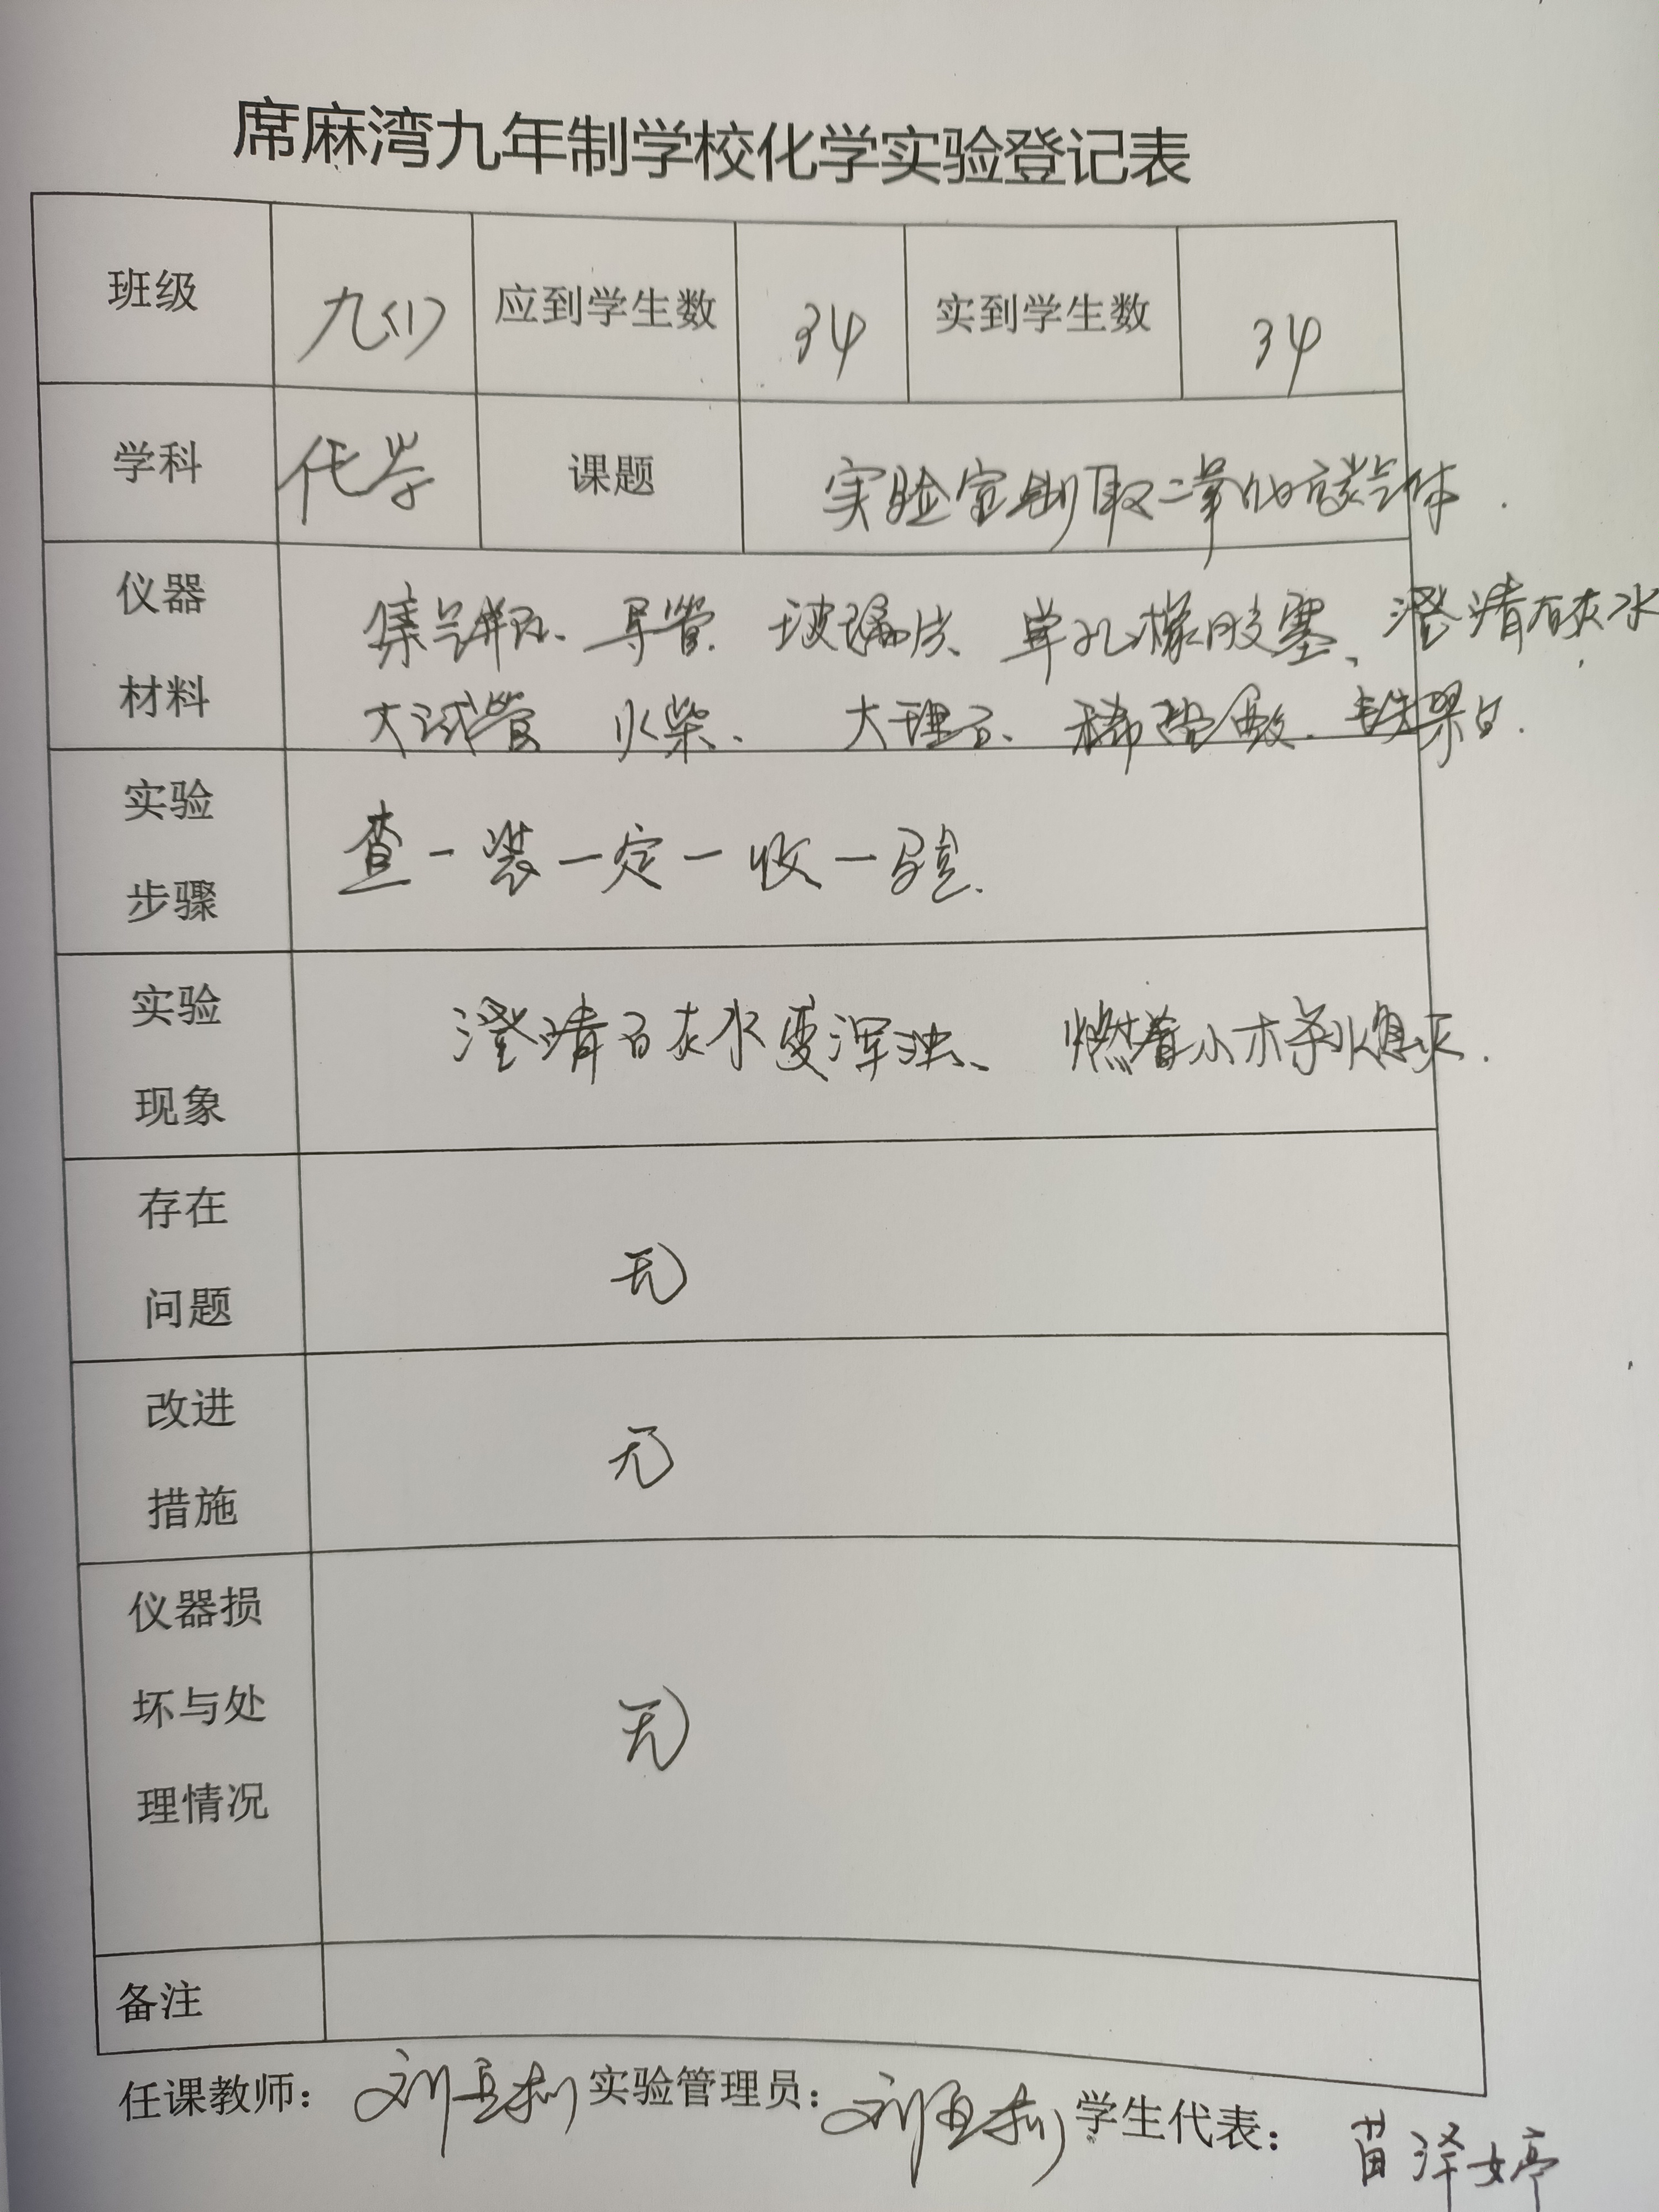 席麻湾九年制学校化学实验登记表
班级 九(1) 应到学生数 34 实到学生数 34
学科 化学 课题 实验室制取二氧化碳气体.
仪器材料 集气瓶、导管、玻璃片、单孔橡胶塞、澄清石灰水、
大试管 火柴、 大理石、稀盐酸、铁架台.
实验步骤 查一装一定一收一验.
实验现象 澄清石灰水变浑浊、 燃着小木条火熄灭.
存在问题 无
改进措施 无
仪器损坏与处理情况 无
备注
任课教师: 刘 实验管理员: 刘 学生代表: 苗泽婷